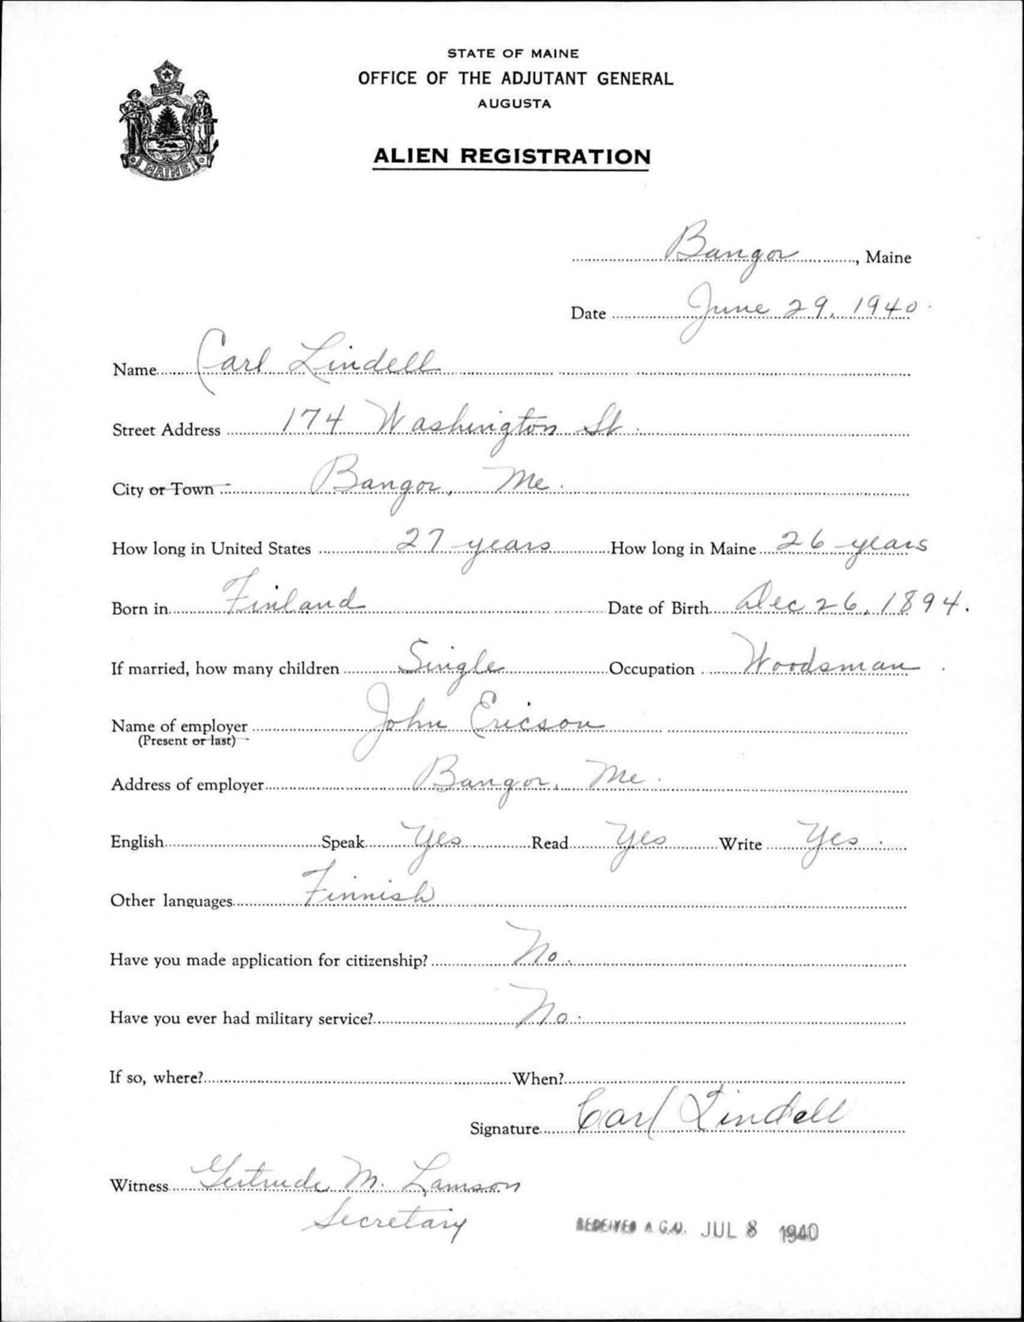 STATE OF MAINE
OFFICE OF THE ADJUTANT GENERAL
AUGUSTA
ALIEN REGISTRATION
MAINE
Bangor, Maine
Date June 29, 1940
Name Carl Lindell
Street Address 174 Washington St.
City or Town Bangor, Me.
How long in United States 27 years How long in Maine 26 years
Born in Finland Date of Birth Dec 26, 1894.
If married, how many children Single Occupation Woodsman
Name of employer John Ericson
(Present or last)
Address of employer Bangor, Me.
English Speak Yes Read Yes Write Yes.
Other languages Finnish
Have you made application for citizenship? No.
Have you ever had military service? No.
If so, where? When?
Signature Carl Lindell
Witness Gertrude M. Lamson
Secretary
RECEIVED A.G.O. JUL 8 1940